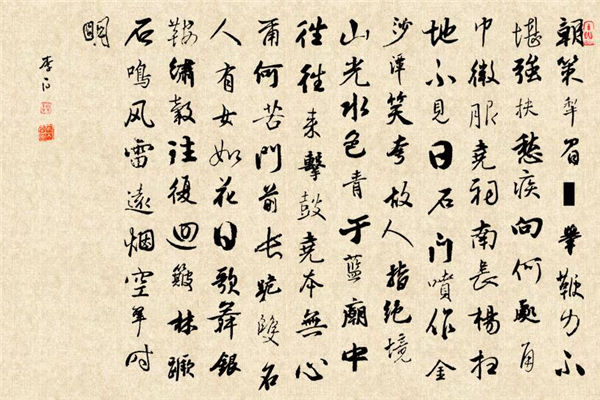 朝策犁眉■舉鞭力不
堪強扶愁疾向何處角
巾微服堯祠南長楊掃
地不見日石门噴作金
沙潭笑夸故人指绝境
山光水色青于藍廟中
往往来擊鼓堯本無心
爾何苦門前長跪雙石
人有女如花日歌舞銀
鞍繡轂往復迴簸林蹶
石鳴风雷遠烟空翠时
明
李白